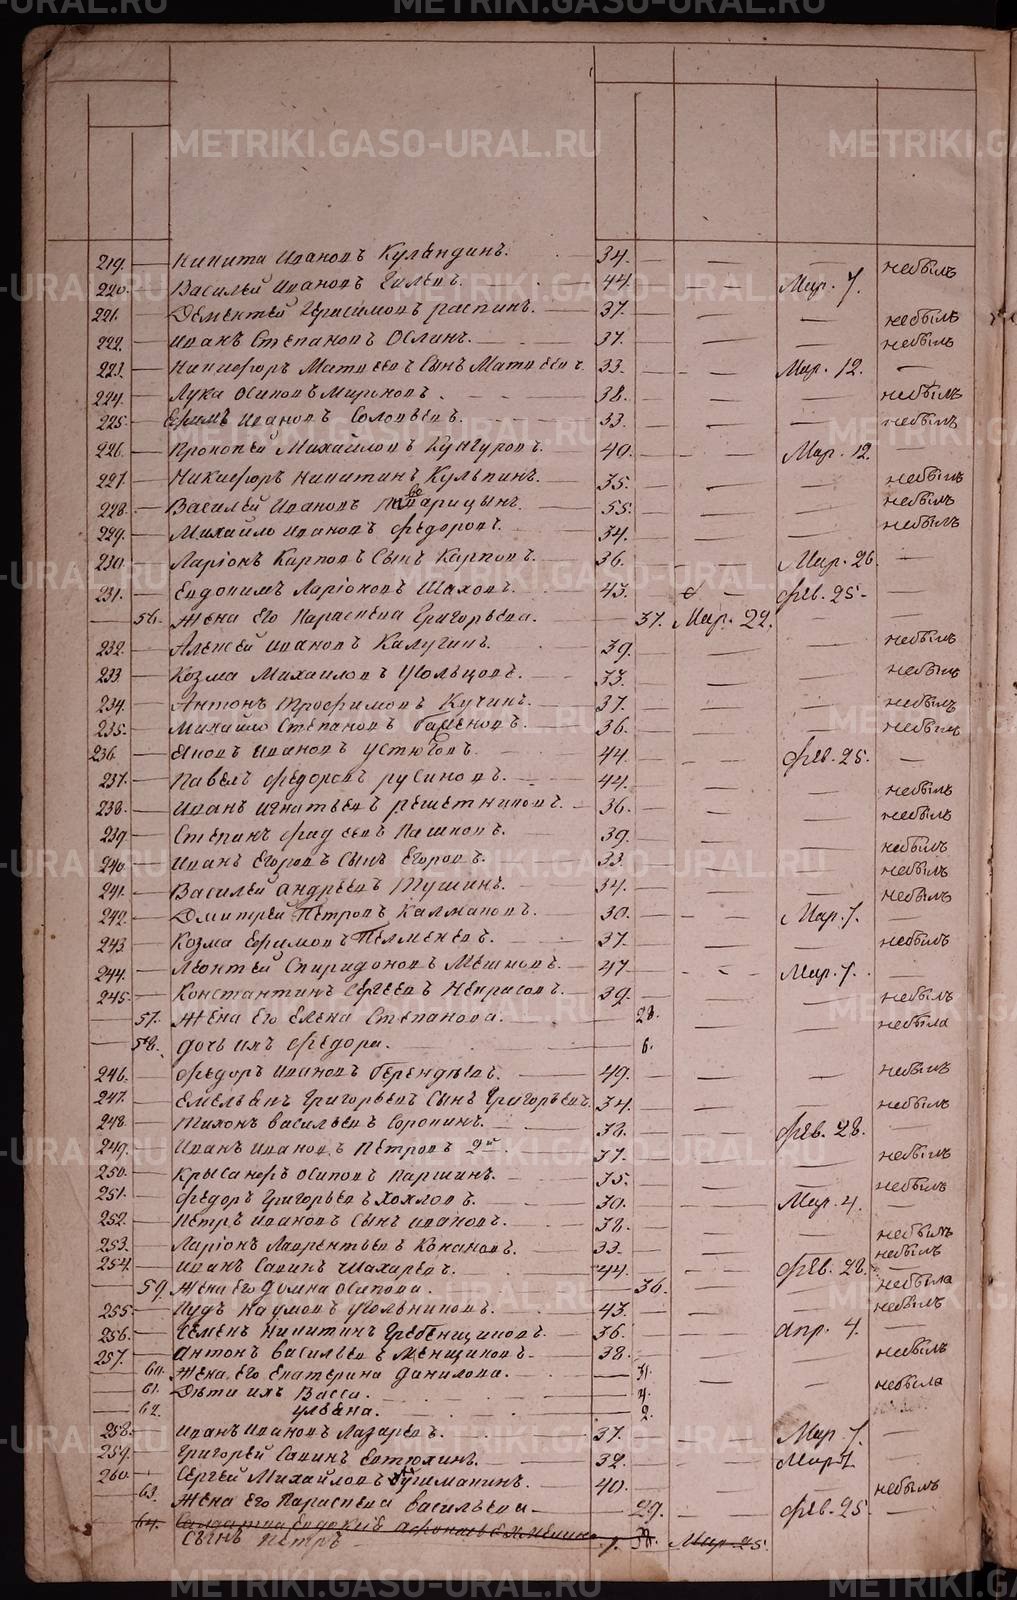 METRIKI.GASO-URAL.RU
219. Никита Иванов Куландин. 34. небыл
220. Василей Иванов Гилев. 44. Мар. 7.
221. Дементей Герасимов распин. 37. небыл
222. Иван Степанов Ослин. 37. небыл
223. Никифор Матвеев Сын Матвеев. 33. Мар. 12.
224. Лука Осипов Миронов. 38. небыл
225. Ефим Иванов Соловьев. 33. небыл
226. Прокопей Михайлов Кунгуров. 40. Мар. 12.
227. Никифор Никитин Кульпин. 35. небыл
228. Василей Иванов 55. небыл
229. Михайло Иванов Федоров. 34. небыл
230. Ларiон Карпов Сын Карпов. 36. Мар. 26
231. Евдоким Ларiонов Шахов. 43. фев. 25.
56. Жена Его Параскева Григорьева. 37. Мар. 22.
232. Алексей Иванов Калугин. 39. небыл
233 Козма Михайлов Угольцов. 33. небыл
234. Антон Трофимов Кучин. 37. небыл
235. Михайло Степанов 36. небыл
236. Яков Иванов устюгов. 44. фев. 25.
237. Павел Федоров русинов. 44. небыл
238. Иван Игнатьев решетников. 36. небыл
239. Степан Фадеев Пашков. 39. небыл
240. Иван Егоров Сын Егоров. 33. небыл
241. Василей андреев Тушин. 34. небыл
242. Дмитрей Петров Калманов. 30. Мар. 7.
243 Козма Ефимов Пелменев. 37. небыл
244. Леонтей Спиридонов Мешков. 47 Мар. 7.
245. Константин Сергеев Некрасов. 39. небыл
57. Жена Его Елена Степанова. 28. небыла
58. дочь их Федора. 6.
246. Федор Иванов Берендеев. 49. небыл
247. Емельян Григорьев Сын Григорьев. 34. небыл
248. Тихон васильев Сорокин. 38. фев. 28.
249. Иван Иванов Петров 2й. 37. небыл
250. Крысанф Осипов Паршин. 35. небыл
251. Федор Григорьев Хохлов. 30. Мар. 4.
252. Петр Иванов Сын иванов. 38. небыл
253. Ларiон Лаврентьев Коканов. 33. небыл
254. Иван Савин Шахарев. 44. фев. 28.
59. Жена Его Домна Осипова. 36. небыла
255. Иуд Наумов угольников. 43. небыл
256. Семен Никитин Гребенщиков. 36. апр. 4.
257. Антон васильев Менщиков. 38. небыл
60. Жена Его Екатерина данилова. 31. небыла
61. Дети их Васса. 4.
62. ульяна. 2.
258. Иван Иванов Лазарев. 37. Мар. 7.
259. Григорей Савин Евтюхин. 32. Мар 7.
260. Сергей Михайлов 40. небыл
63. Жена Его Параскева васильева 29. фев. 25.
64. Мар. 25.
Сын Петр 1.